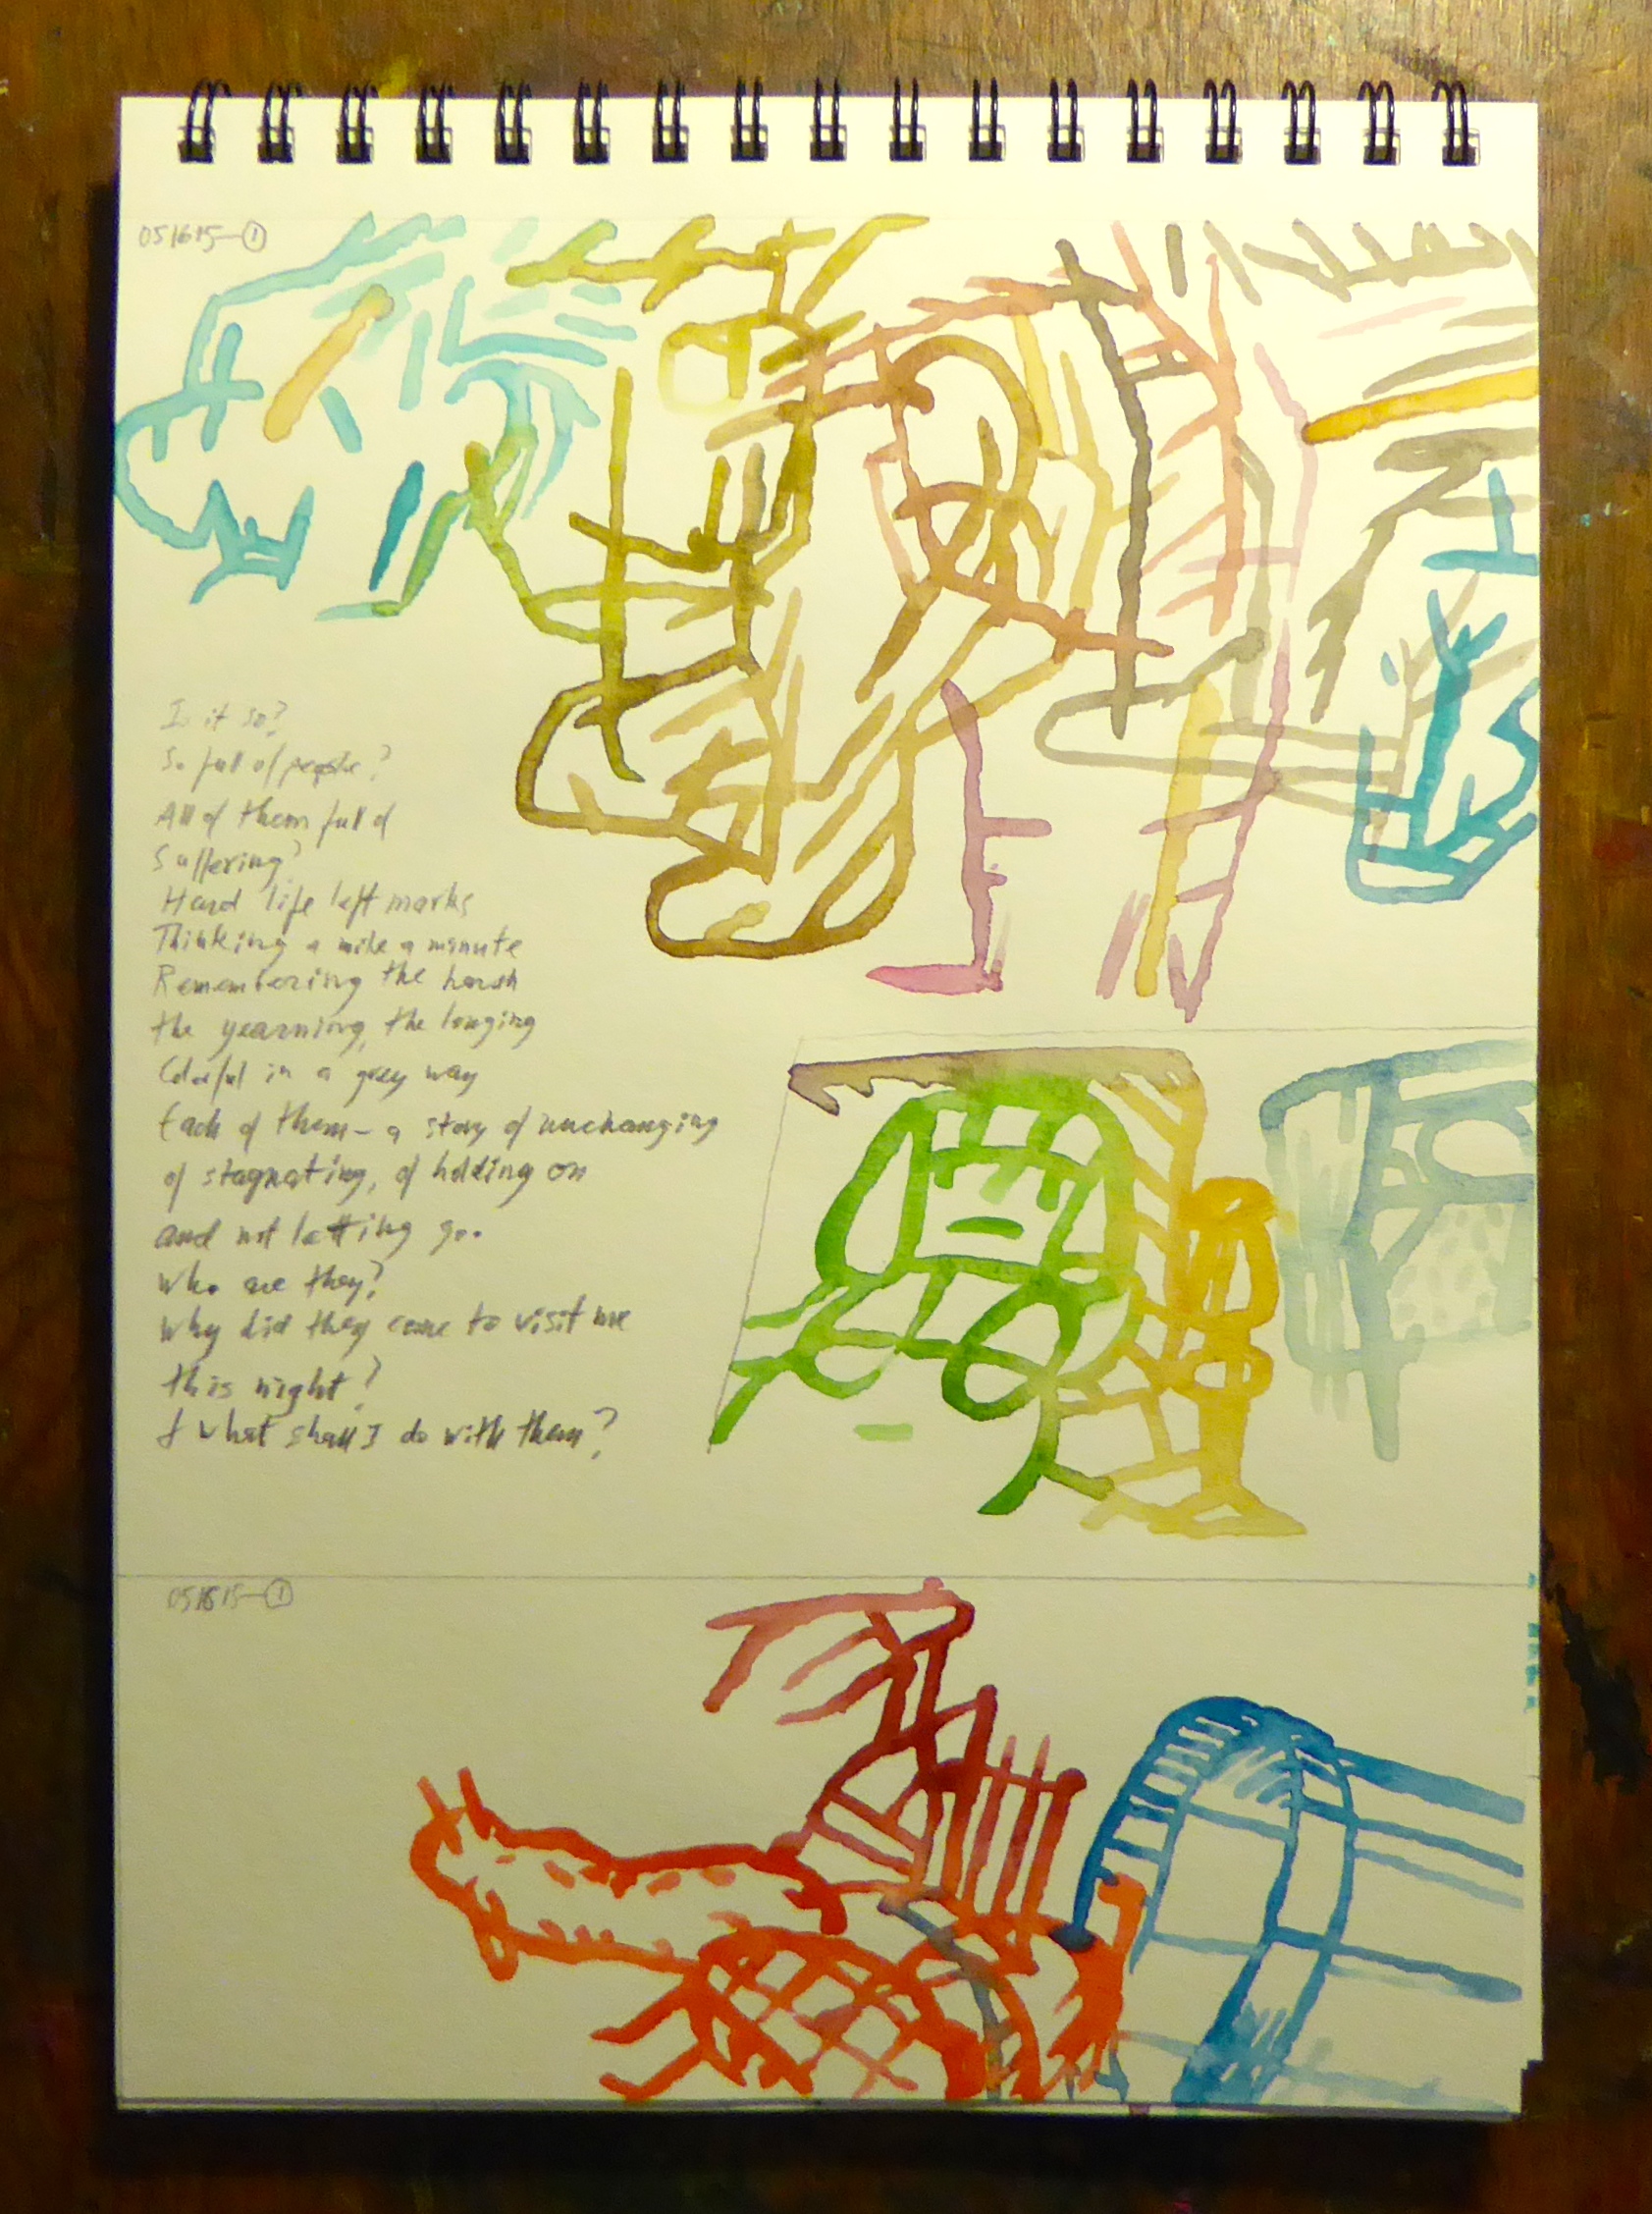 051615-①
Is it so?
So full of people?
All of them full of
Suffering?
Hard life left marks
Thinking a mile a minute
Remembering the harsh
the yearning, the longing
Colorful in a grey way
Each of them - a story of unchanging
of stagnating, of holding on
and not letting go.
Who are they?
Why did they come to visit me
this night?
& what shall I do with them?
051815-①